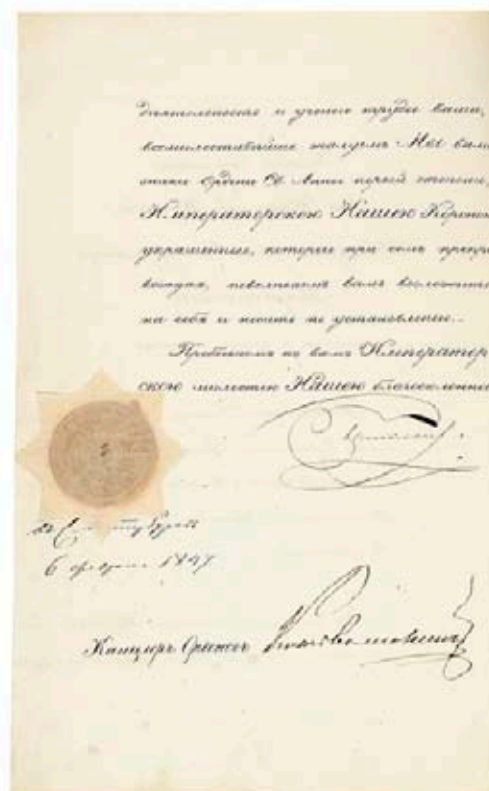 деятельность и ученые труды Ваши,
всемилостивейше жалуем Мы Вам
знаки Ордена Св. Анны первой степени,
Императорскою Нашею Корон
украшенные, которые при сем препро
вождая, повелеваем Вам возложить
на себя и носить по установлению.
Пребываем к вам Император-
скою милостию Нашею благосклонны
6 февраля 1847
Канцлер Орденов